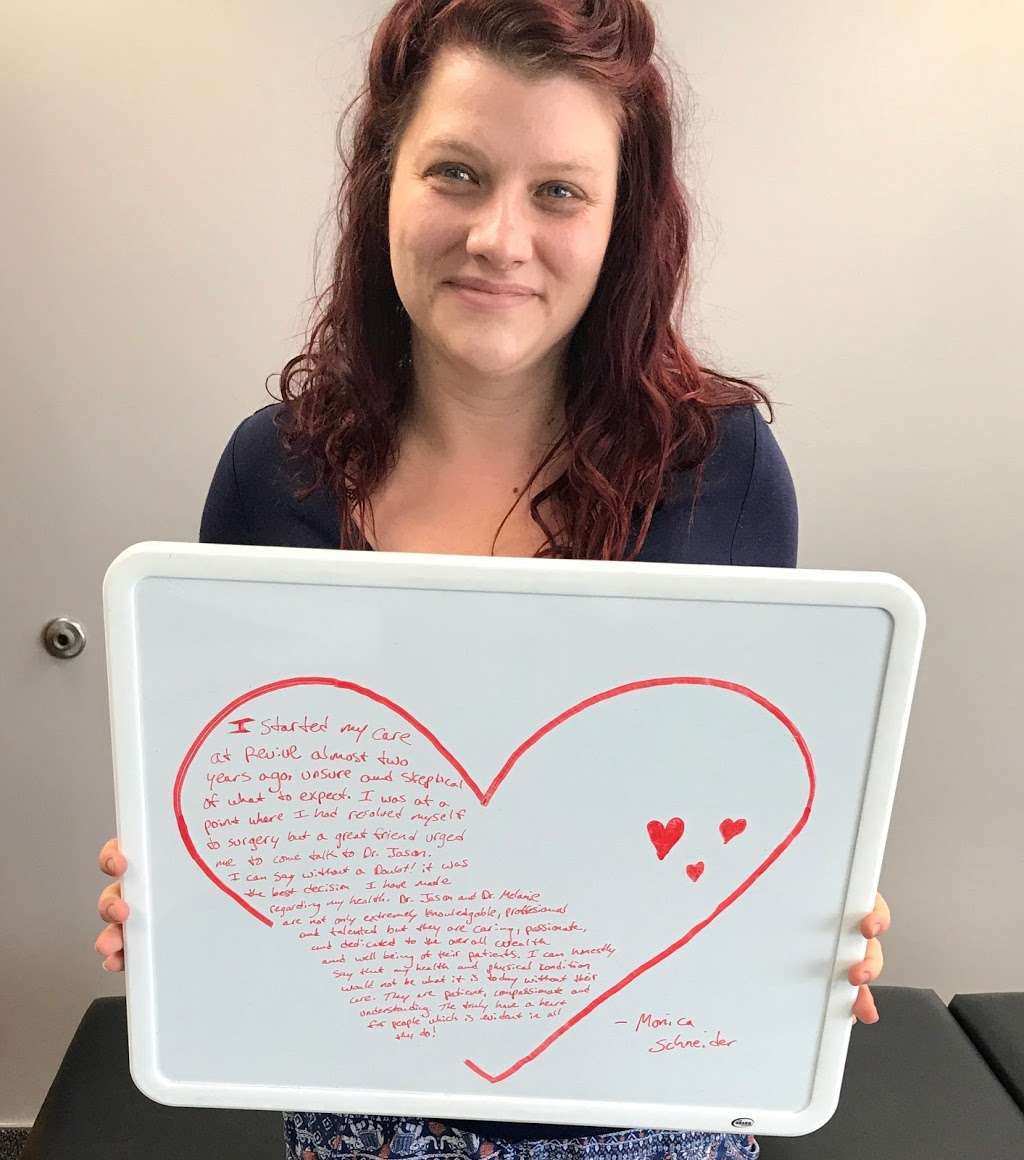 I Started my care
at Revive almost two
years ago, unsure and skeptical
of what to expect. I was at a
point where I had resolved myself
to surgery but a great friend urged
me to come talk to Dr. Jason.
I can say without a Doubt! it was
the best decision I have made
regarding my health. Dr. Jason and Dr. Melanie
are not only extremely knowledgable, proffesional
and talented but they are caring, passionate,
and dedicated to the overall wealth
and well being of their patients. I can honestly
say that my health and physical condition
would not be what it is today without their
care. They are patient, compassionate and
understanding. The truly have a heart
for people which is evident in all
they do!
- Monica
Schneider